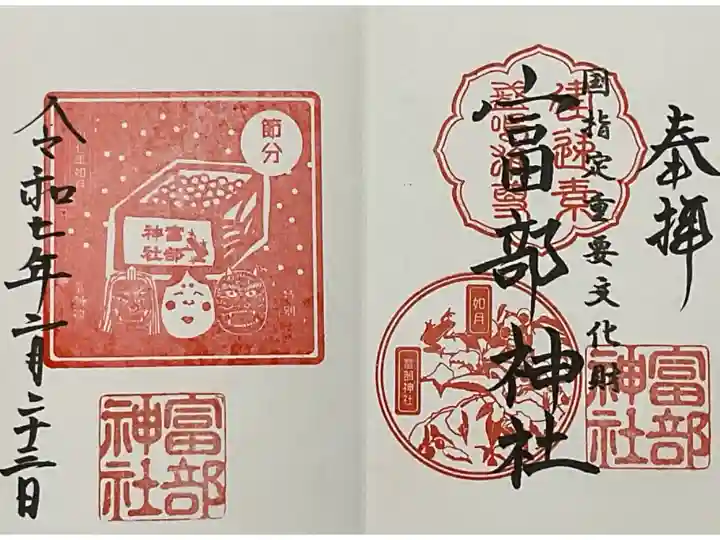 奉拝
国指定重要文化財
富部神社
御神素
如月
富部神社
富部
神社
令和七年二月二十三日
節分
七年如月
富部
神社
特別
富部
神社